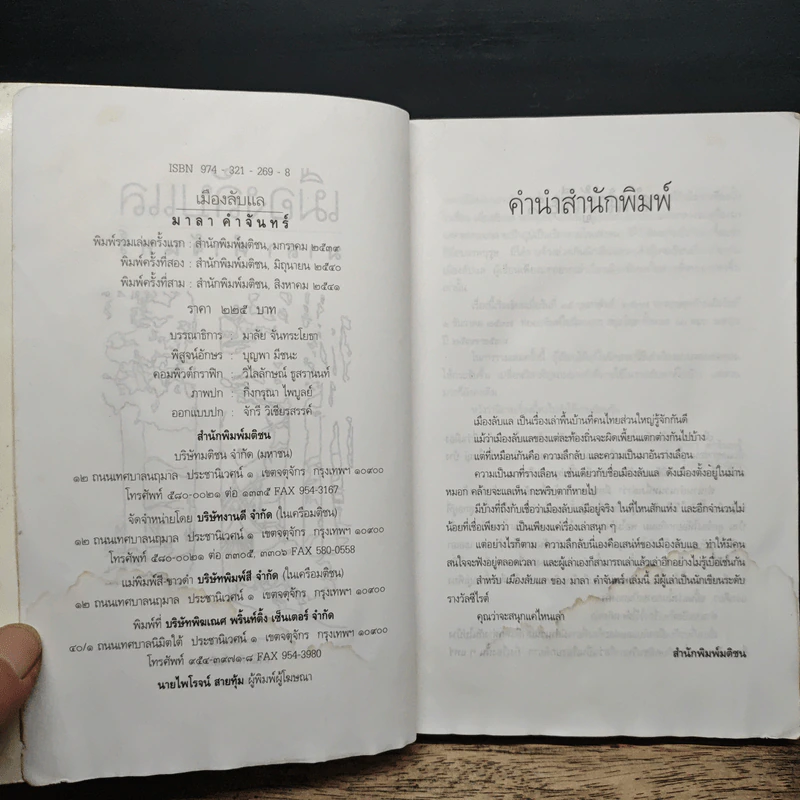 ISBN 974 - 321 - 269 - 8
เมืองลับแล
มาลา คำจันทร์
พิมพ์รวมเล่มครั้งแรก : สำนักพิมพ์มติชน, มกราคม ๒๕๓๙
พิมพ์ครั้งที่สอง : สำนักพิมพ์มติชน, มิถุนายน ๒๕๔๐
พิมพ์ครั้งที่สาม : สำนักพิมพ์มติชน, สิงหาคม ๒๕๔๑
ราคา ๒๒๕ บาท
บรรณาธิการ : มาลัย จันทระโยธา
พิสูจน์อักษร : บุญพา มีชนะ
คอมพิวต์กราฟิก : วิไลลักษณ์ ธูสรานนท์
ภาพปก : กิ่งกรุณา ไพบูลย์
ออกแบบปก : จักรี วิเชียรสรรค์
สำนักพิมพ์มติชน
บริษัทมติชน จำกัด (มหาชน)
๑๒ ถนนเทศบาลนฤมาล ประชานิเวศน์ ๑ เขตจตุจักร กรุงเทพฯ ๑๐๙๐๐
โทรศัพท์ ๕๘๐-๐๐๒๑ ต่อ ๑๓๓๕ FAX 954-3167
จัดจำหน่ายโดย บริษัทงานดี จำกัด (ในเครือมติชน)
๑๒ ถนนเทศบาลนฤมาล ประชานิเวศน์ ๑ เขตจตุจักร กรุงเทพฯ ๑๐๙๐๐
โทรศัพท์ ๕๘๐-๐๐๒๑ ต่อ ๓๓๐๕, ๓๓๐๖ FAX 580-0558
แม่พิมพ์สี-ขาวดำ บริษัทพิมพ์สี จำกัด (ในเครือมติชน)
๑๒ ถนนเทศบาลนฤมาล ประชานิเวศน์ ๑ เขตจตุจักร กรุงเทพฯ ๑๐๙๐๐
พิมพ์ที่ บริษัทพิฆเณศ พริ้นท์ติ้ง เซ็นเตอร์ จำกัด
๔๐/๑ ถนนเทศบาลนิมิตใต้ ประชานิเวศน์ ๑ เขตจตุจักร กรุงเทพฯ ๑๐๙๐๐
โทรศัพท์ ๙๕๔-๓๙๗๑-๘ FAX 954-3980
นายไพโรจน์ สายทุ้ม ผู้พิมพ์ผู้โฆษณา
คำนำสำนักพิมพ์
เมืองลับแล เป็นเรื่องเล่าพื้นบ้านที่คนไทยส่วนใหญ่รู้จักกันดี
แม้ว่าเมืองลับแลของแต่ละท้องถิ่นจะผิดเพี้ยนแตกต่างกันไปบ้าง
แต่ที่เหมือนกันคือ ความลึกลับ และความเป็นมาอันรางเลือน
ความเป็นมาที่รางเลือน เช่นเดียวกับชื่อเมืองลับแล ดังเมืองตั้งอยู่ในม่าน
หมอก คล้ายจะแลเห็น กะพริบตาก็หายไป
มีบ้างที่ถึงกับเชื่อว่าเมืองลับแลมีอยู่จริง ในที่ไหนสักแห่ง และอีกจำนวนไม่
น้อยที่เชื่อเพียงว่า เป็นเพียงแค่เรื่องเล่าสนุก ๆ
แต่อย่างไรก็ตาม ความลึกลับนี้เองคือเสน่ห์ของเมืองลับแล ทำให้มีคน
สนใจจะฟังอยู่ตลอดเวลา และผู้เล่าเองก็สามารถเล่าแล้วเล่าอีกอย่างไม่รู้เบื่อเช่นกัน
สำหรับ เมืองลับแล ของ มาลา คำจันทร์ เล่มนี้ มีผู้เล่าเป็นนักเขียนระดับ
รางวัลซีไรต์
คุณว่าจะสนุกแค่ไหนเล่า
สำนักพิมพ์มติชน